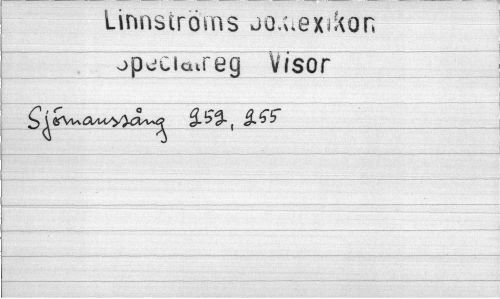 Linnströms Boklexikon
Specialreg Visor
Sjömanssång 252, 255